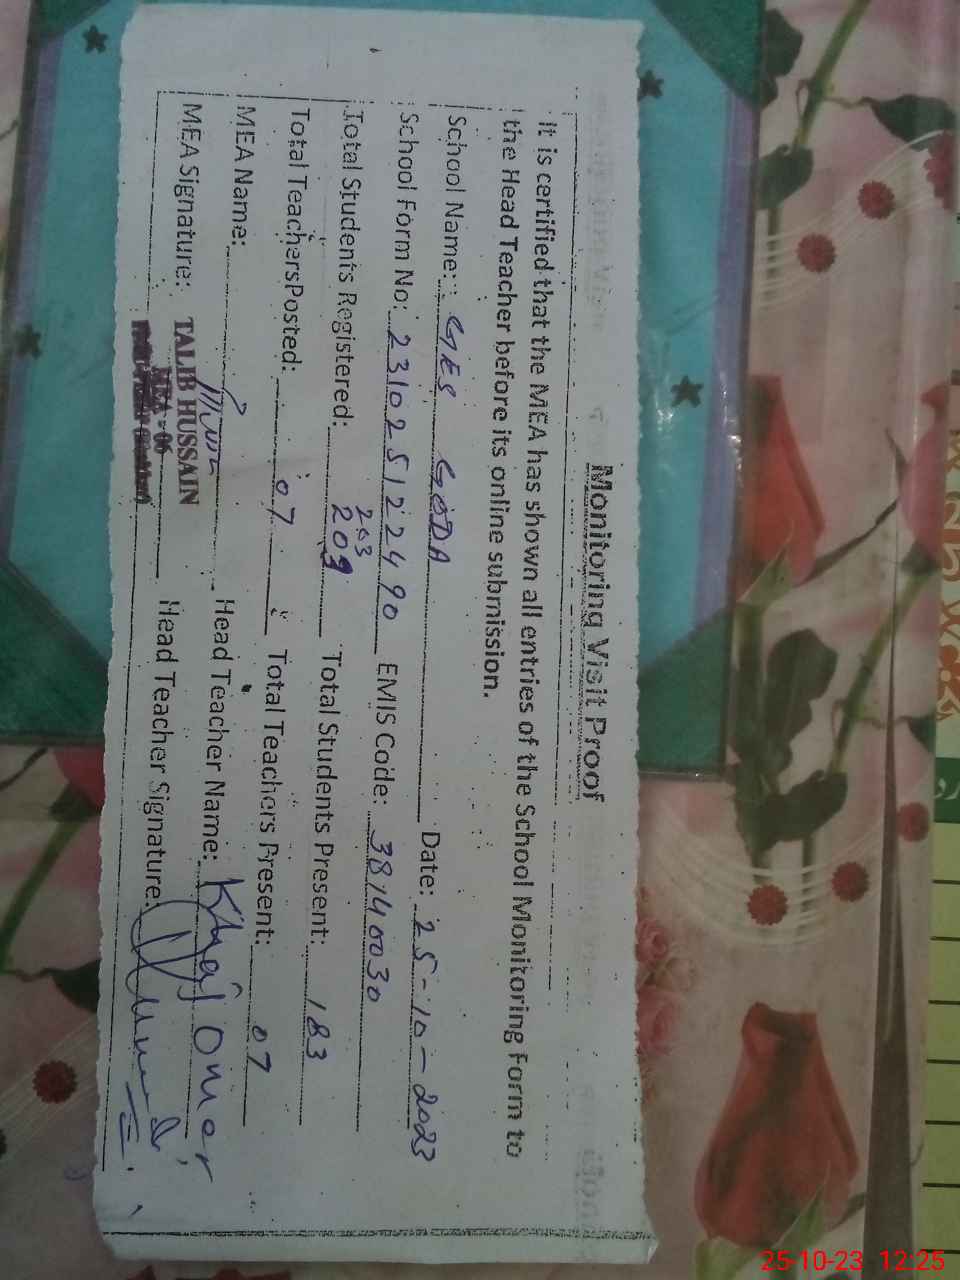 Monitoring Visit Proof
It is certified that the MEA has shown all entries of the School Monitoring Form to
the Head Teacher before its online submission.
School Name: GES GODA Date: 25-10-2023
School Form No: 23102512490 EMIS Code: 38140030
Total Students Registered: 203 209 Total Students Present: 183
Total TeachersPosted: 07 Total Teachers Present: 07
MEA Name: Head Teacher Name:
MEA Signature: TALIB HUSSAIN Head Teacher Signature:
MEA-06
25-10-23 12:25